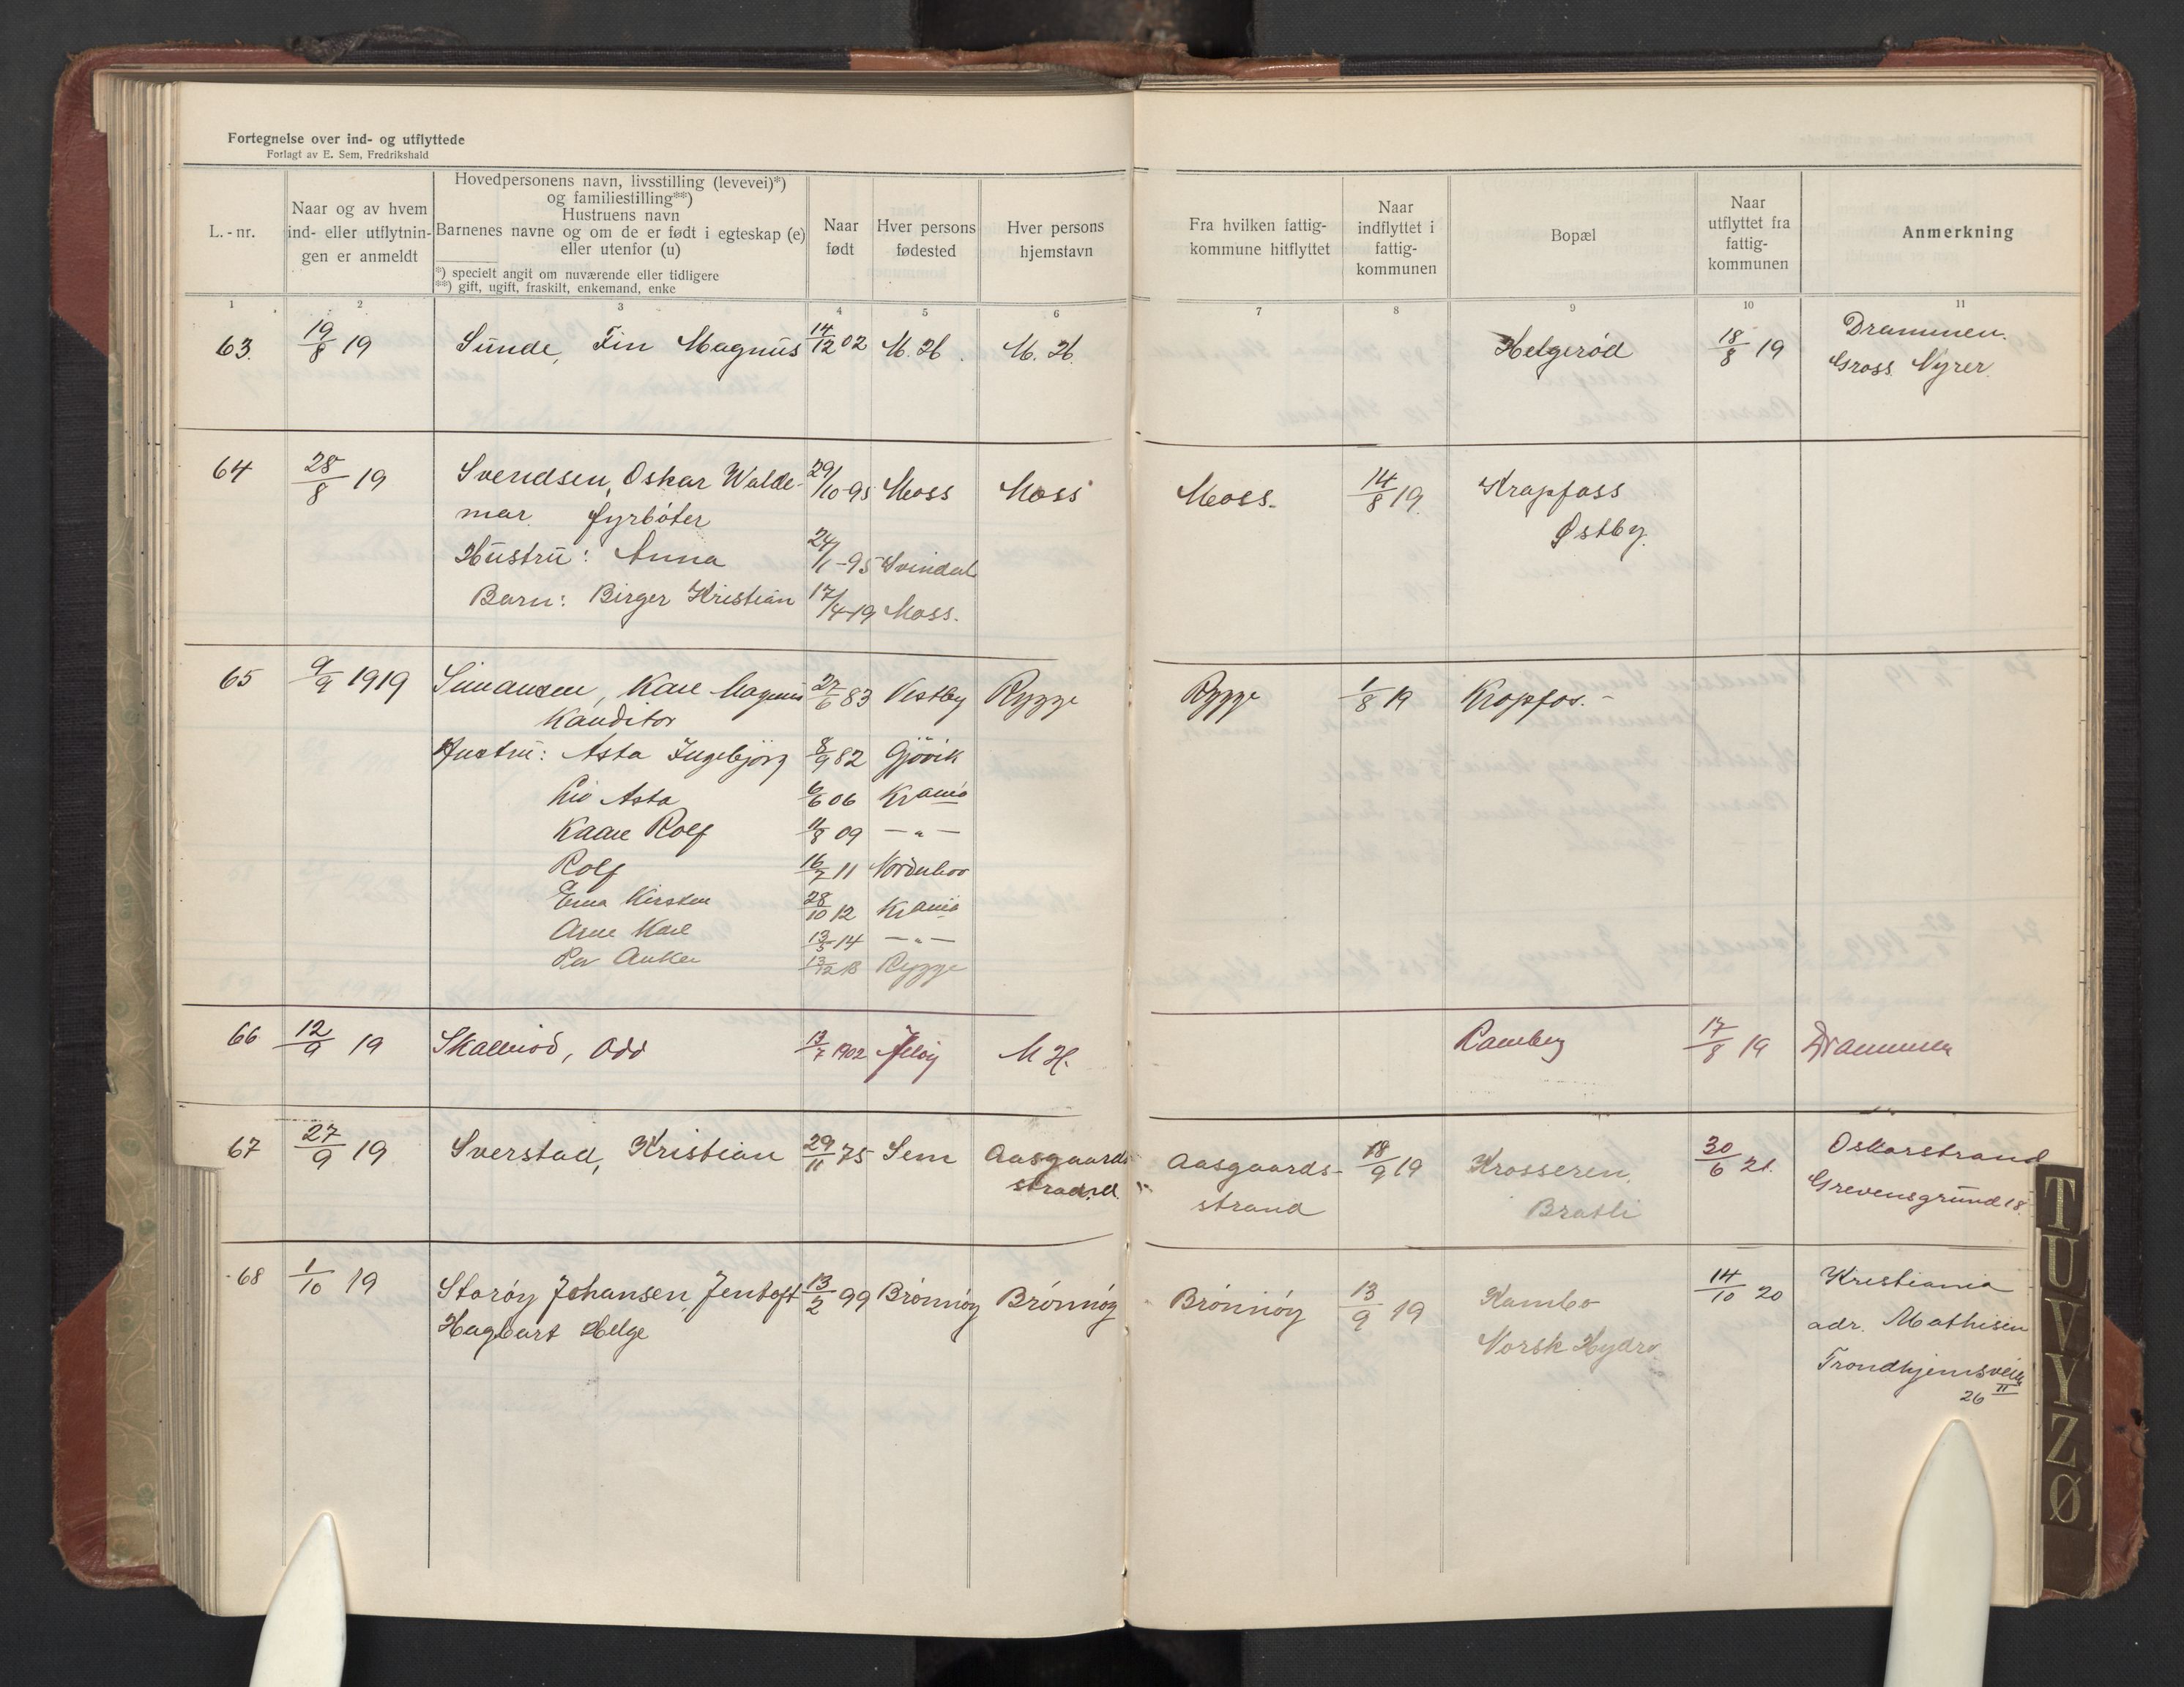 Fortegnelse over ind- og utflyttede
Forlagt av E. Sem, Fredrikshald
L.-nr.
Naar og av hvem
ind- eller utflytnin-
gen er anmeldt
Hovedpersonens navn, livsstilling (levevei)*)
og familiestilling**)
Hustruens navn
Barnenes navne og om de er født i egteskap (e)
eller utenfor (u)
*) specielt angit om nuværende eller tidligere
**) gift, ugift, fraskilt, enkemand, enke
Naar
født
Hver persons
fødested
Hver persons
hjemstavn
Fra hvilken fattig-
kommune hitflyttet
Naar
indflyttet i
fattig-
kommunen
Bopæl
Naar
utflyttet fra
fattig-
kommunen
Anmerkning
1 2 3 4 5 6 7 8 9 10 11
63. 19/8 19 Sunde, Fin Magnus 14/12 02 M. H. M. H. Helgerød 18/8 19 Drammen.
Gross. Nyrer.
64 28/8 19 Svendsen, Oskar Walde- 29/10-95 Moss Moss Moss. 14/8 19. Krapfoss
mar. fyrbøter Østby.
Hustru: Anna 24/1-95 Svindal
Barn: Birger Kristian 17/4-19 Moss.
65 9/9 1919 Simansen, Karl Magnus 27/6 83 Vestby Rygge Rygge 1/8 19 Kropfos.-
Kanditor
Hustru: Asta Ingebjørg 8/9 82 Gjøvik
Liv Asta 6/6 06 Krania
Kaare Rolf 11/8 09 —"—
Rolf 16/7 11 Norderhov
Erna Kirsten 28/10 12 Krania
Arne Karl 13/5-14 —"—
Per Anker 13/12 18 Rygge
66 12/9 19 Skallerød, Odd 13/7 1902 Jeløy M H. Ramberg 17/8 19 Drammen
67 27/9 19 Sverstad, Kristian 29/11 75 Sem Aasgaards Aasgaards- 18/9 19 Krosseren. 30/6 21. Oskarstrand
strand. strand Bratli Grevensgrund 18.
68 1/10 19 Storøy Johansen, Jentoft 13/2 99 Brønnøy Brønnøy Brønnøy 13/9 19 Kambo 14/10 20 Kristiania
Hagbart Helge Norsk Hydro adr. Mathisen
Trondhjemsveien
26 II
T
U
V
Y
Z
Ø